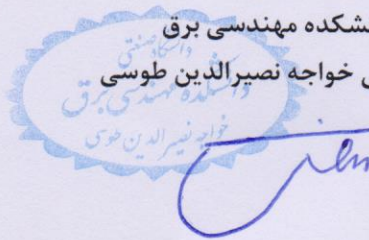 شکده مهندسی برق
خواجه نصیرالدین طوسی
دانشگاه صنعتی
دانشکده مهندسی برق
خواجه نصیرالدین طوسی